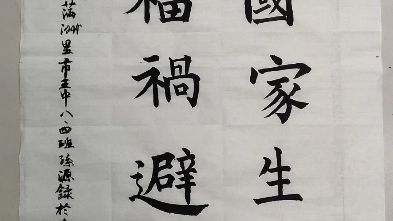 國家生
福禍避
滿洲里市五中八四班孫源錄於